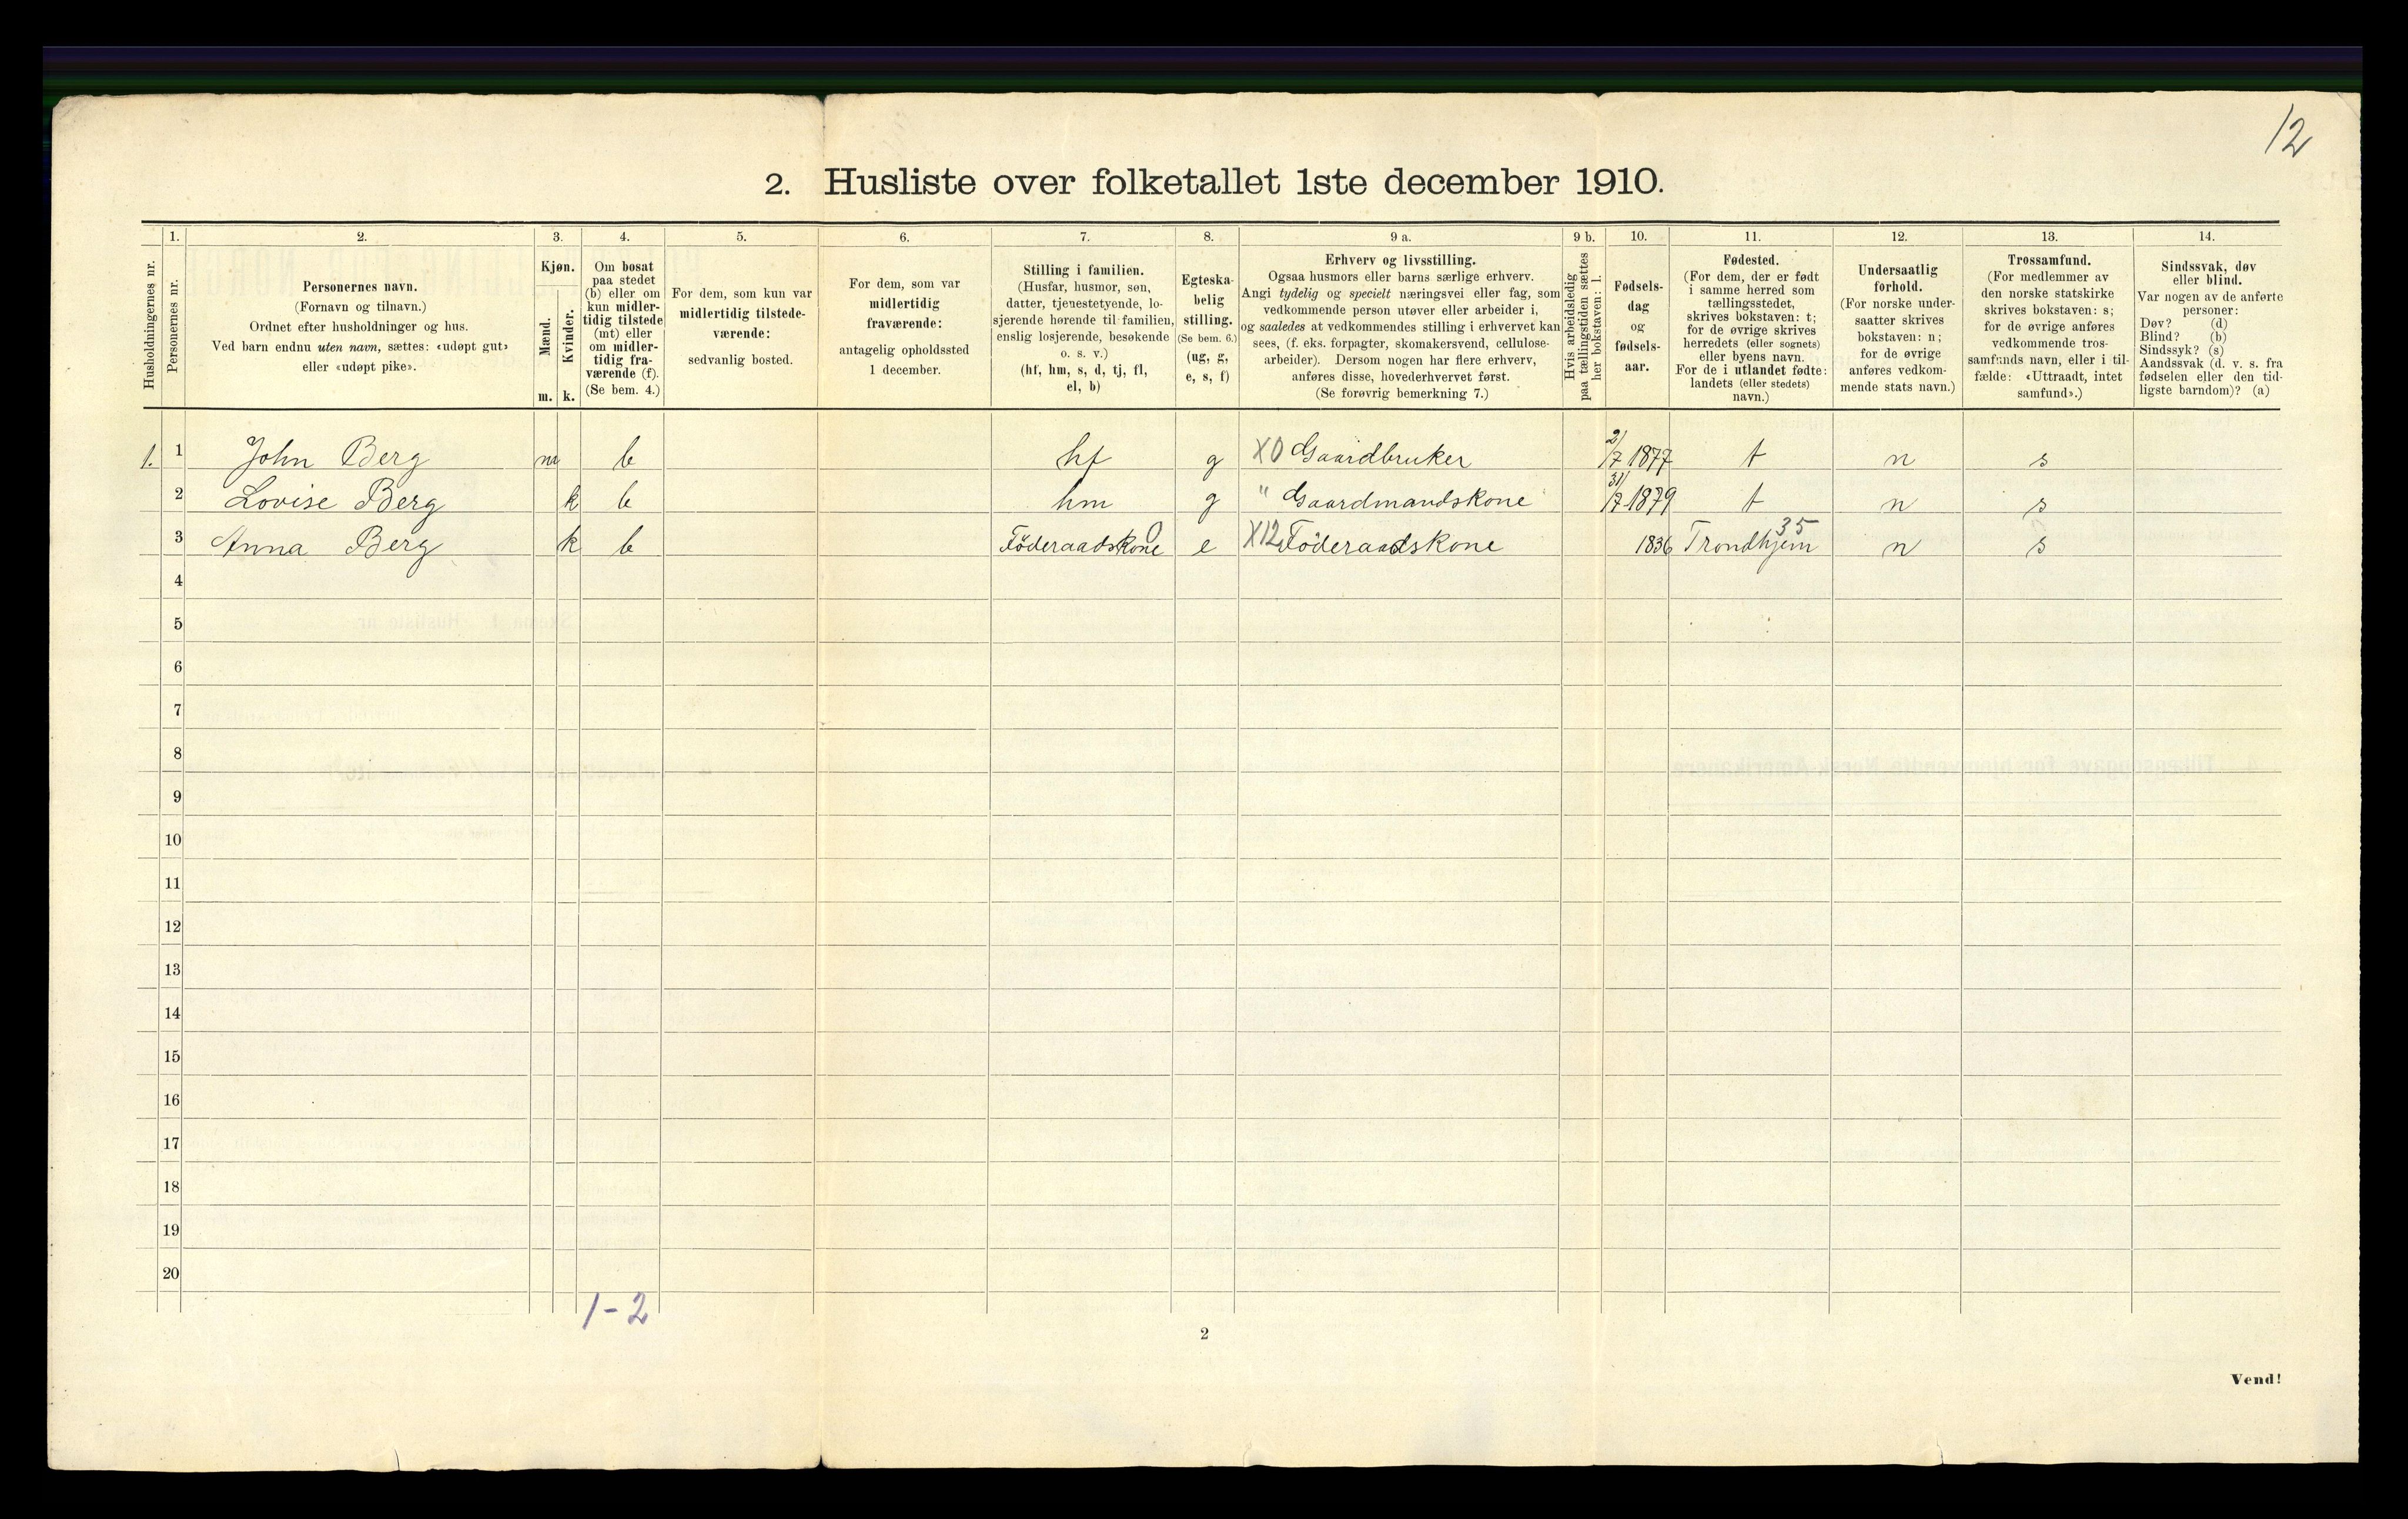 12
2. Husliste over folketallet 1ste december 1910.
Husholdningernes nr.
1. Personernes nr.
2. Personernes navn.
(Fornavn og tilnavn.)
Ordnet efter husholdninger og hus.
Ved barn endnu uten navn, sættes: «udøpt gut»
eller «udøpt pike».
3. Kjøn.
Mænd. Kvinder.
m. k.
4. Om bosat
paa stedet
(b) eller om
kun midler-
tidig tilstede
(mt) eller
om midler-
tidig fra-
værende (f).
(Se bem. 4.)
5. For dem, som kun var
midlertidig tilstede-
værende:
sedvanlig bosted.
6. For dem, som var
midlertidig
fraværende:
antagelig opholdssted
1 december.
7. Stilling i familien.
(Husfar, husmor, søn,
datter, tjenestetyende, lo-
sjerende hørende til familien,
enslig losjerende, besøkende
o. s. v.)
(hf, hm, s, d, tj, fl,
el, b)
8. Egteska-
belig
stilling.
(Se bem. 6.)
(ug, g,
e, s, f)
9 a. Erhverv og livsstilling.
Ogsaa husmors eller barns særlige erhverv.
Angi tydelig og specielt næringsvei eller fag, som
vedkommende person utøver eller arbeider i,
og saaledes at vedkommendes stilling i erhvervet kan
sees, (f. eks. forpagter, skomakersvend, cellulose-
arbeider). Dersom nogen har flere erhverv,
anføres disse, hovederhvervet først.
(Se forøvrig bemerkning 7.)
9 b. Hvis arbeidsledig
paa tællingstiden sættes
her bokstaven: l.
10. Fødsels-
dag
og
fødsels-
aar.
11. Fødested.
(For dem, der er født
i samme herred som
tællingsstedet,
skrives bokstaven: t;
for de øvrige skrives
herredets (eller sognets)
eller byens navn.
For de i utlandet fødte:
landets (eller stedets)
navn.)
12. Undersaatlig
forhold.
(For norske under-
saatter skrives
bokstaven: n;
for de øvrige
anføres vedkom-
mende stats navn.)
13. Trossamfund.
(For medlemmer av
den norske statskirke
skrives bokstaven: s;
for de øvrige anføres
vedkommende tros-
samfunds navn, eller i til-
fælde: «Uttraadt, intet
samfund».)
14. Sindssvak, døv
eller blind.
Var nogen av de anførte
personer:
Døv? (d)
Blind? (b)
Sindssyk? (s)
Aandssvak (d. v. s. fra
fødselen eller den tid-
ligste barndom)? (a)
1. 1 John Berg m b hf g X0 Gaardbruker 2/7 1877 t n s
2 Lovise Berg k b hm g " Gaardmandskone 31/7 1879 t n s
3 Anna Berg k b Föderaadskone 0 e X12 Föderaadskone 1836 Trondhjem 35 n s
4
5
6
7
8
9
10
11
12
13
14
15
16
17
18
19
20
1-2
2
Vend!